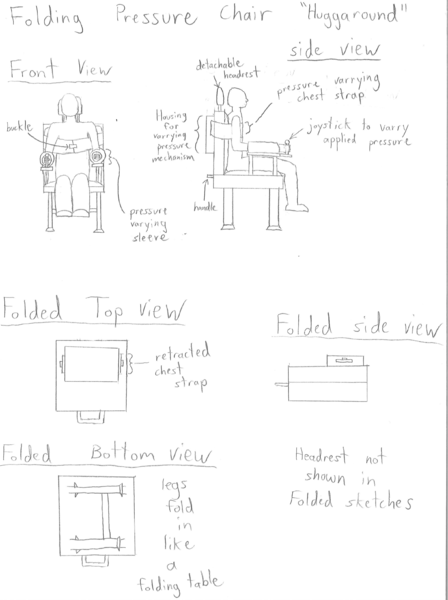 Folding Pressure Chair "Huggaround"
Front View
side view
detachable
headrest
pressure varrying
chest strap
buckle
Housing
for
varrying
pressure
mechanism
joystick to varry
applied pressure
pressure
varying
sleeve
handle
Folded Top view
retracted
chest
strap
Folded side view
Folded Bottom view
legs
fold
in
like
a
folding table
Headrest not
shown in
Folded sketches